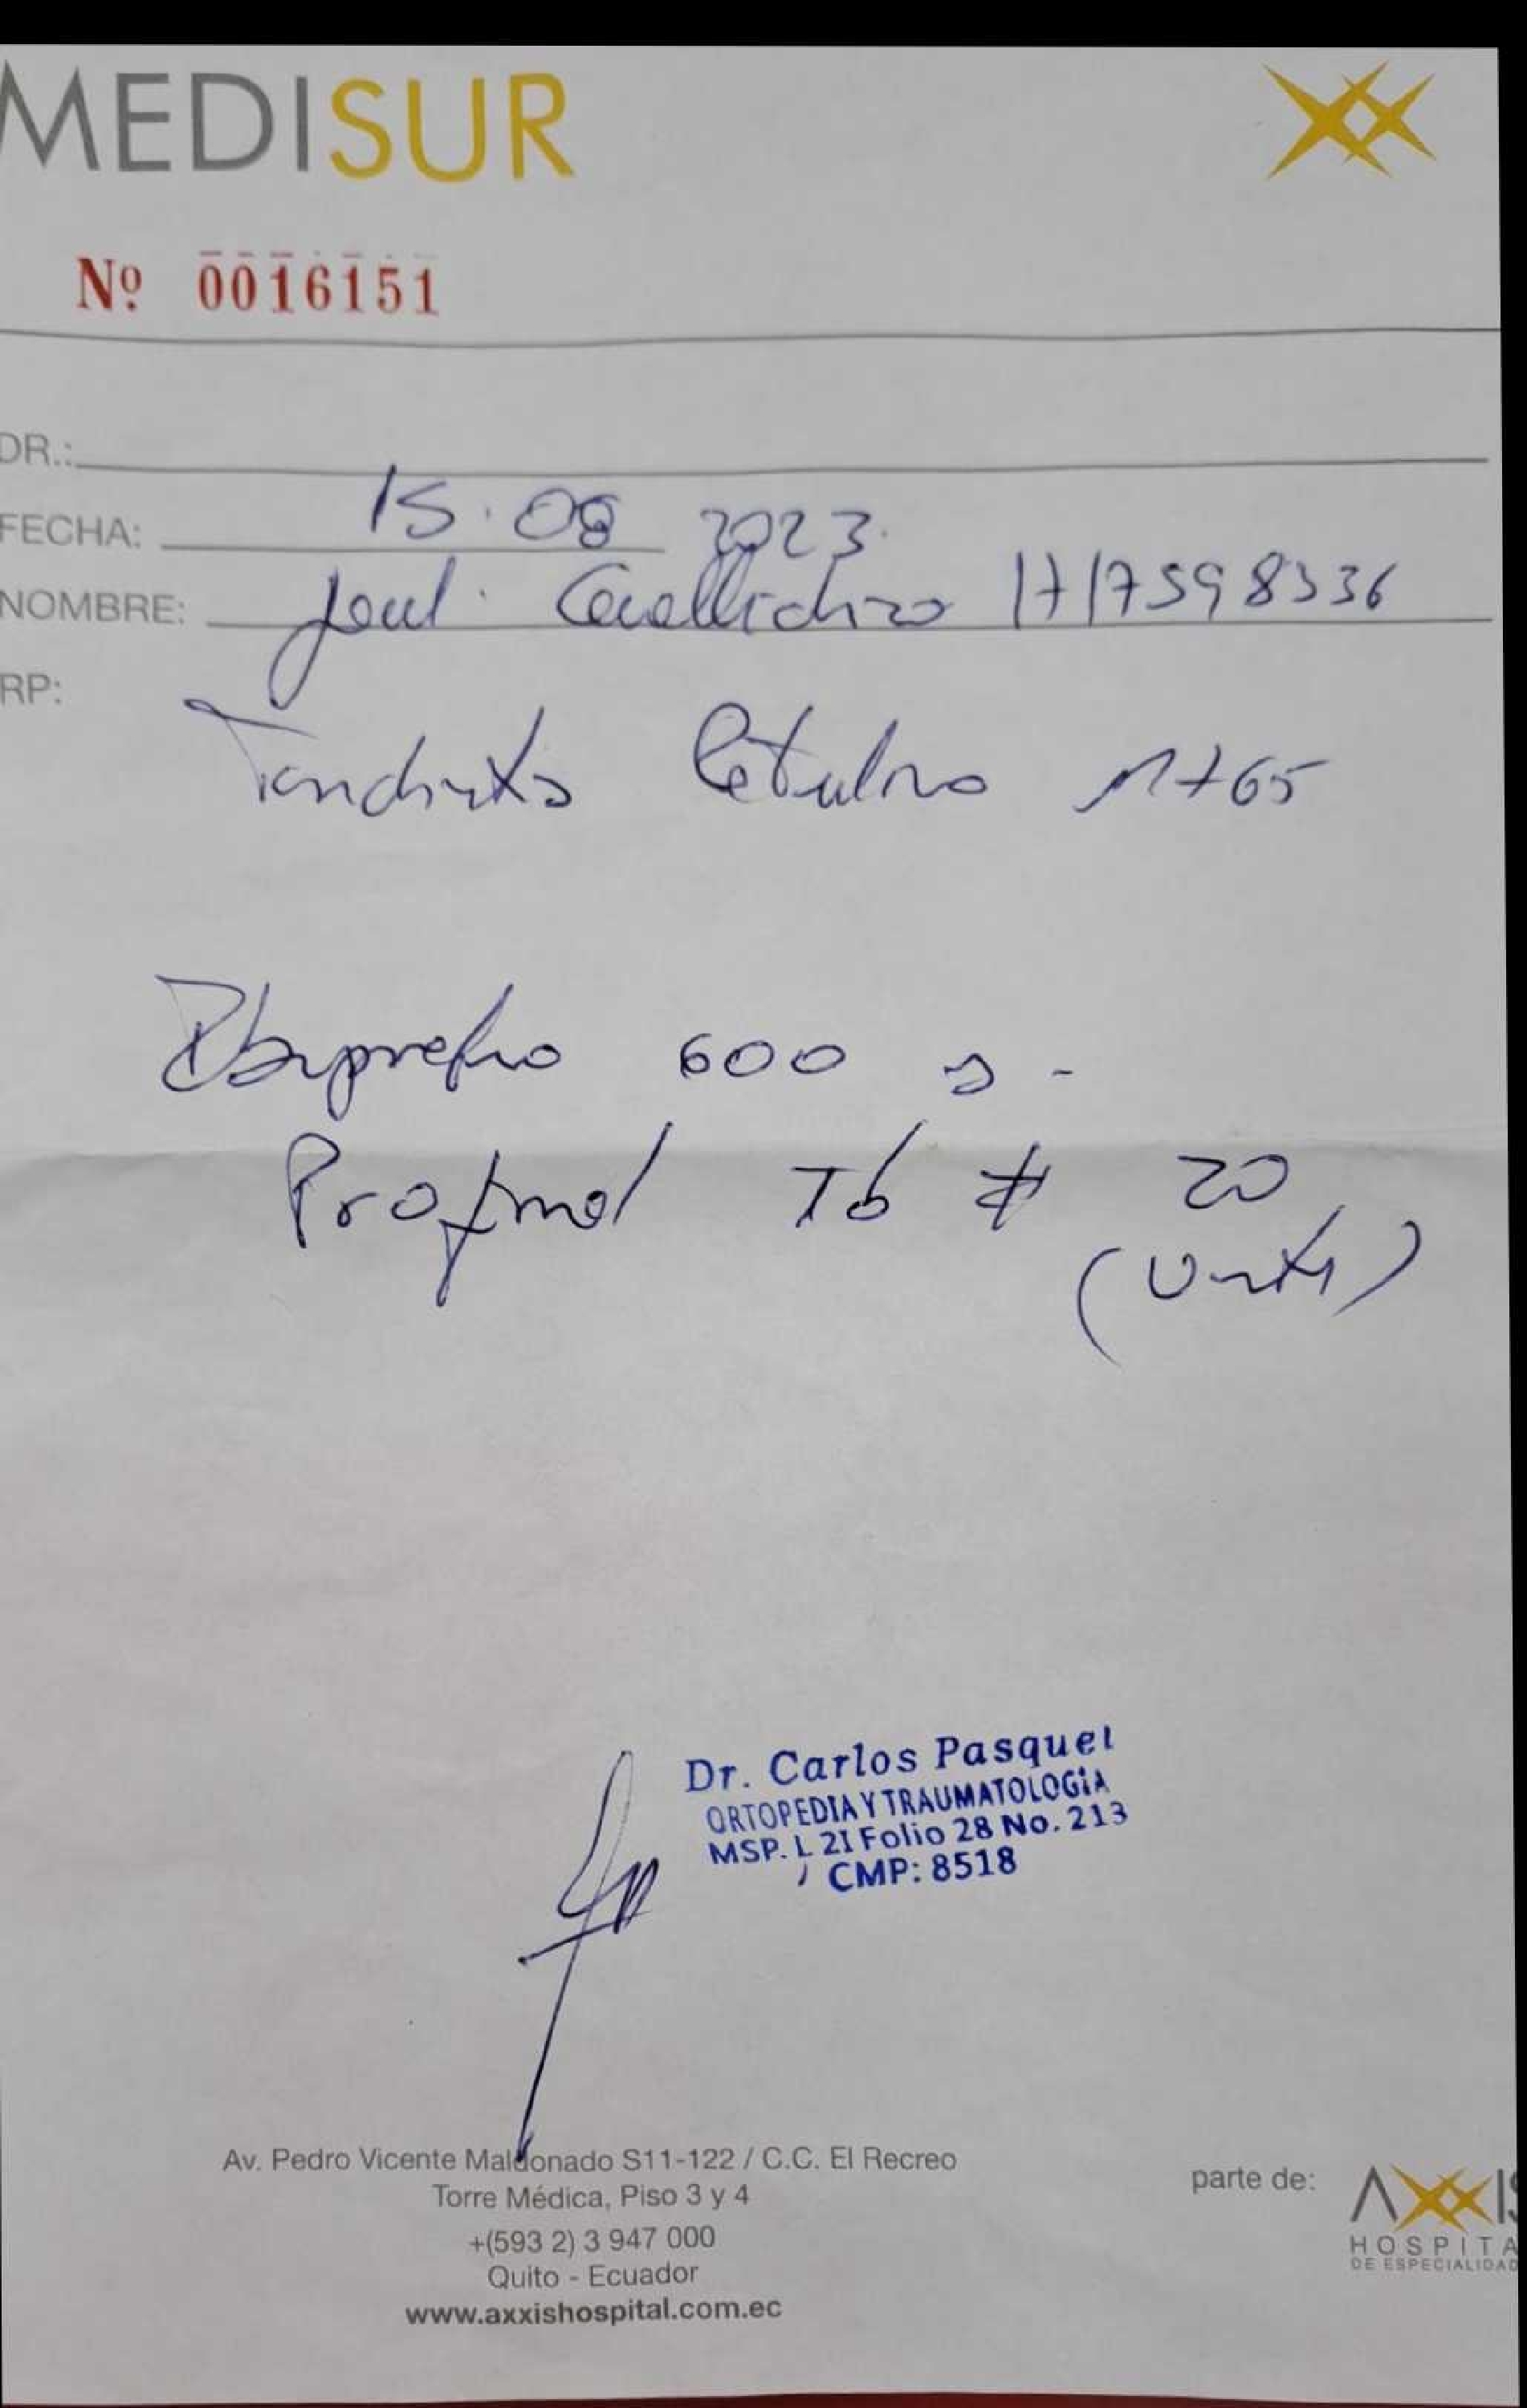 MEDISUR
Nº 0016151
DR.:
FECHA: 15.08 2023.
NOMBRE: 1717598336
RP:
M765
600
Profinal Tb # 20
Dr. Carlos Pasquel
ORTOPEDIA Y TRAUMATOLOGÍA
MSP. L 2I Folio 28 No. 213
CMP: 8518
Av. Pedro Vicente Maldonado S11-122 / C.C. El Recreo
Torre Médica, Piso 3 y 4
+(593 2) 3 947 000
Quito - Ecuador
www.axxishospital.com.ec
parte de:
AXXIS
HOSPITA
DE ESPECIALIDAD